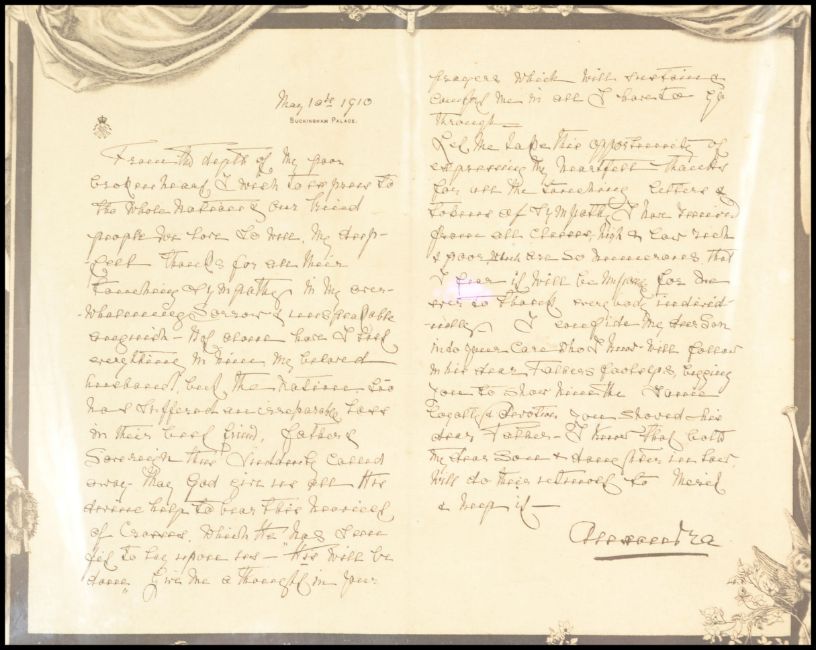 May 10th 1910
BUCKINGHAM PALACE.
From the depth of my poor
broken heart I wish to express to
the whole Nation & our kind
people we love so well, My deep-
felt thanks for all their
touching sympathy in my over-
-whelming sorrow & unspeakable
anguish - Not alone have I lost
everything in him my beloved
husband, but the Nation too
has suffered an irreparable loss
in their best friend, father &
Sovereign thus suddenly called
away - May God give us all His
divine help to bear this heaviest
of Crosses, which He "has seen
fit to lay upon us - His will be
done" Give me a thought in your
prayers which will sustain &
comfort me in all I have to go
through -
Let me take this opportunity of
expressing my heartfelt thanks
for all the touching letters &
tokens of sympathy I have received
from all classes, high & low rich
& poor, which are so numerous that
I fear it will be impossible for me
ever to thank everybody individ-
-ually. I confide my dear Son
into your care who I know will follow
in his dear Fathers footsteps, begging
you to show him the same
loyalty & devotion you showed his
dear Father - I know that both
my dear Son & daughter in law
will do their utmost to merit
& keep it -
Alexandra